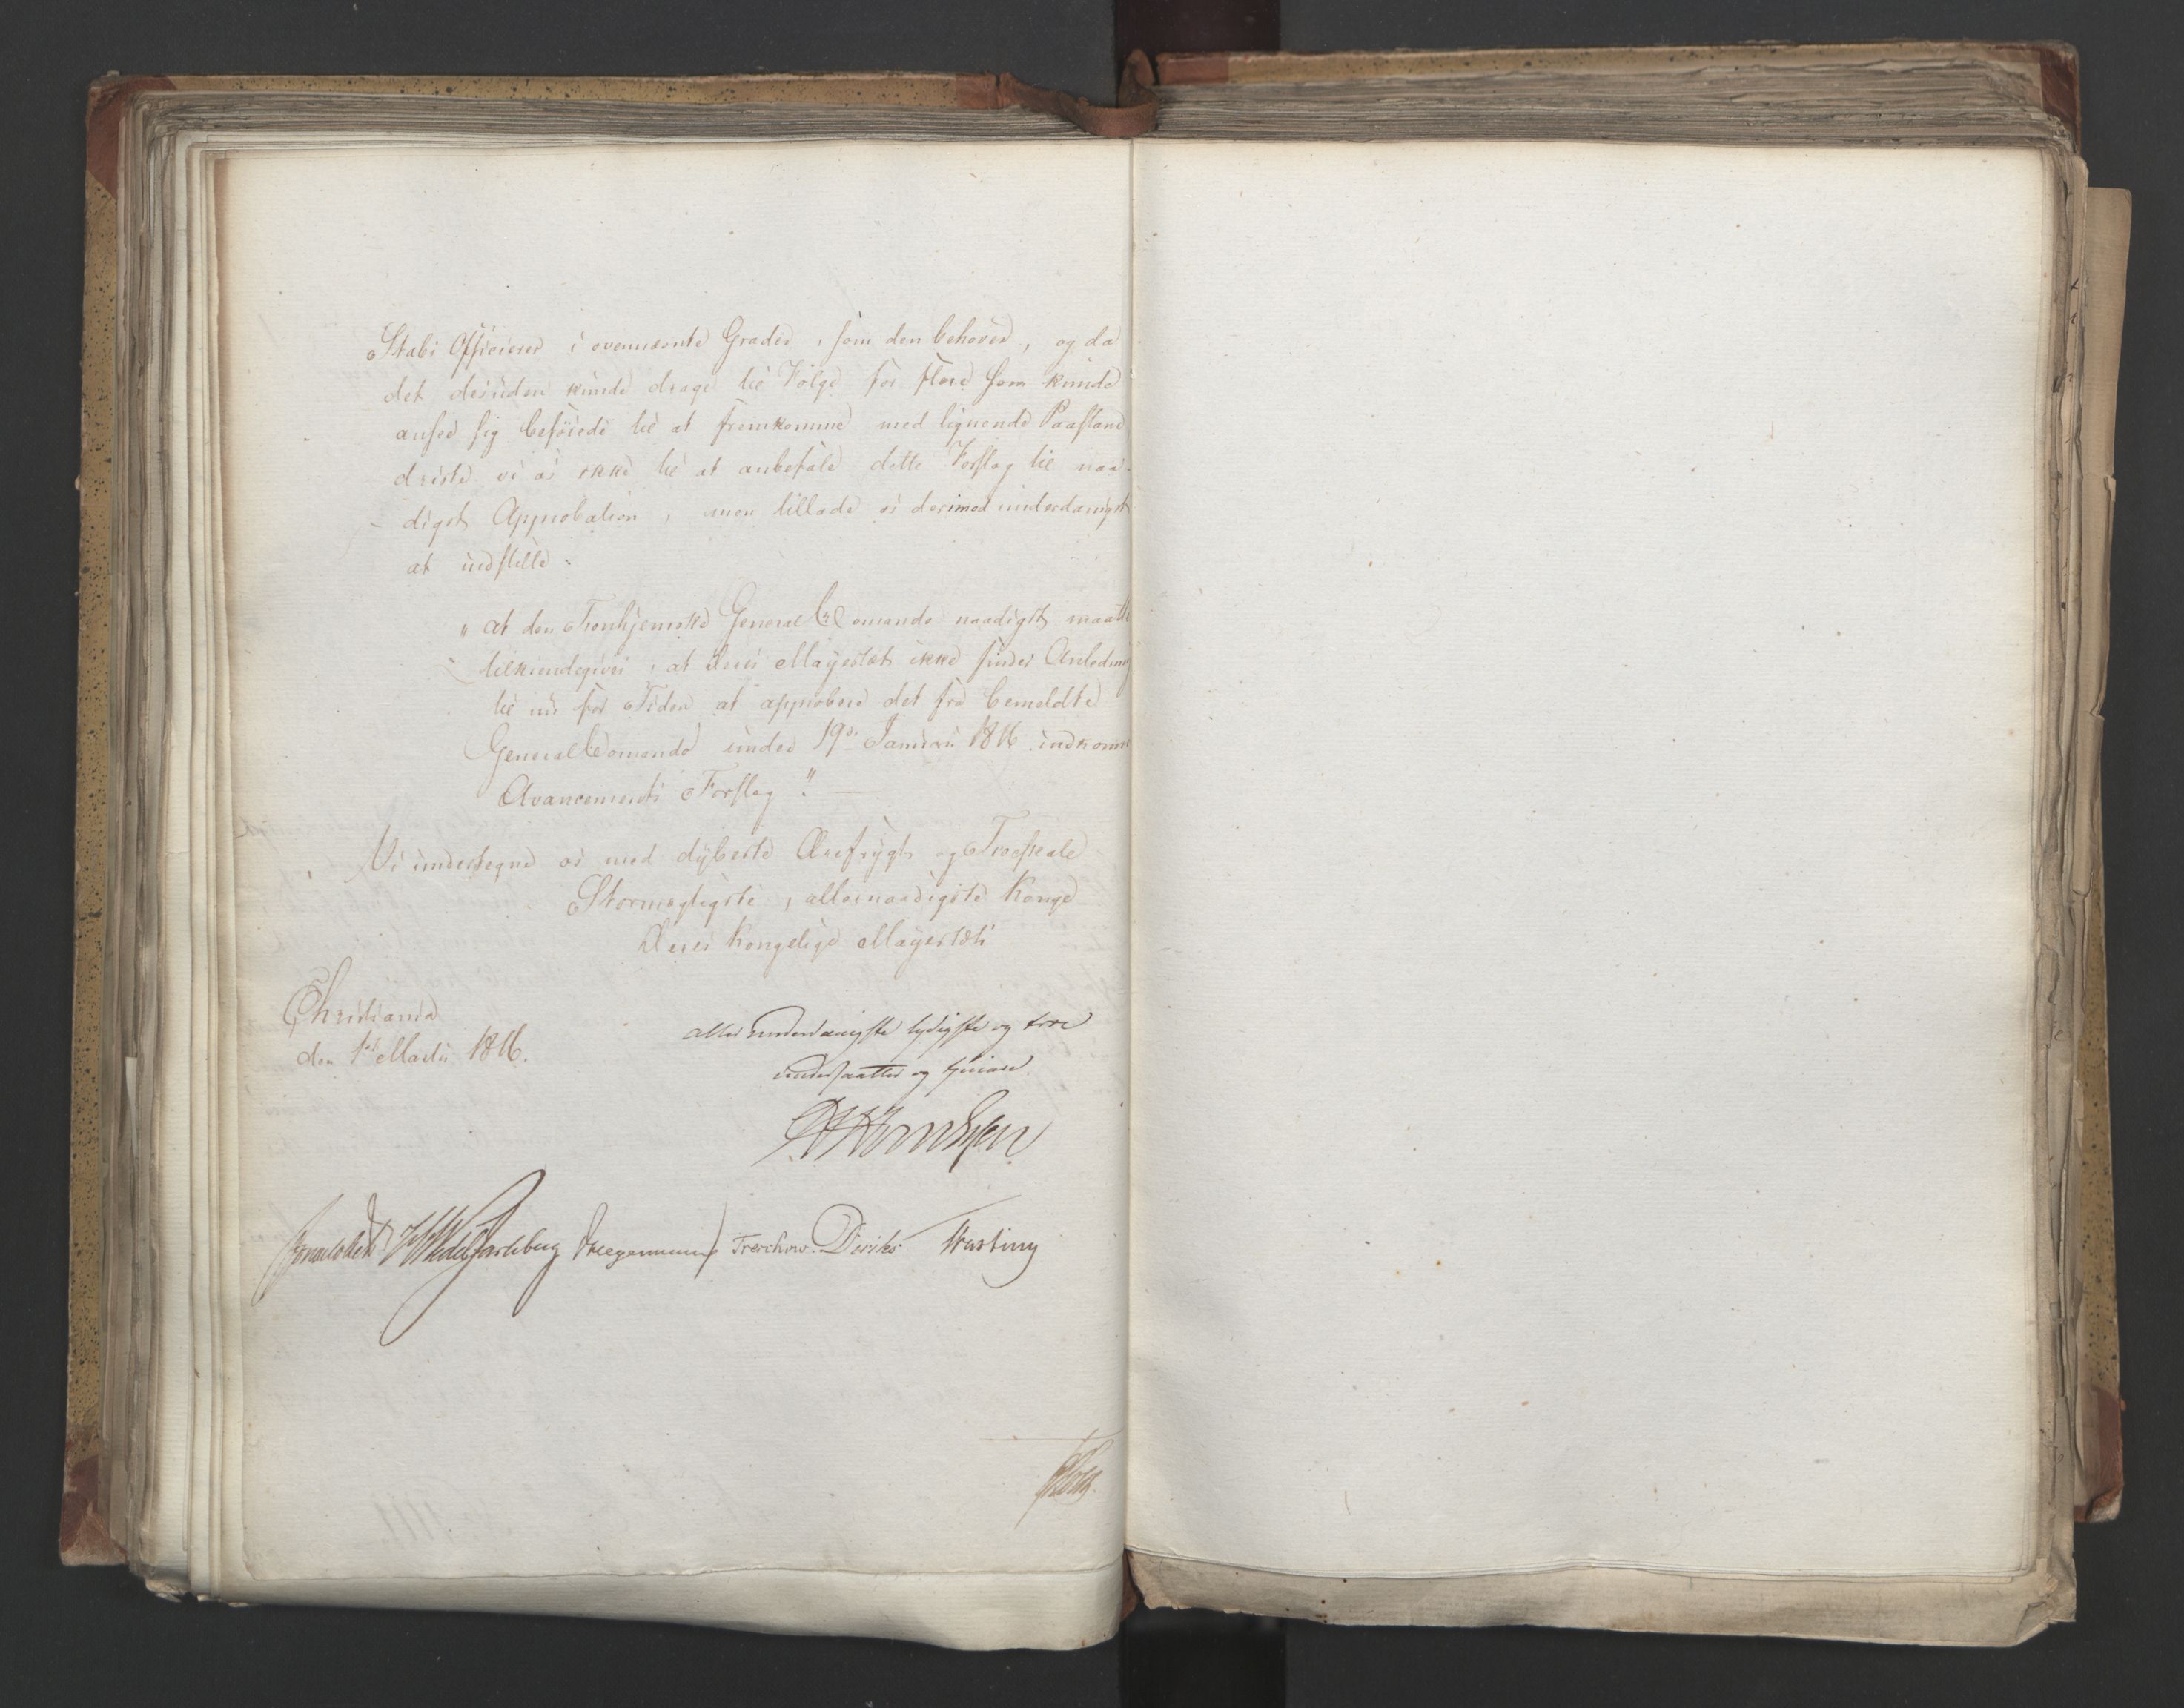 Stabs Officierer i ovennævnte Grader, som den behøver, og da
det desuden kunde drage til Følge for flere som kunde
ansee sig beføiede til at fremkomme med lignende Paastand
driste vi os ikke til at anbefale dette Forslag til naa-
digst Approbation, men tillade os derimod underdanigst
at indstille:
"at den Tronhjemske General Comando naadigst maatte
tilkiendegives, at Deres Mayestæt ikke finder Anledning
til nu for Tiden at approbere det fra bemeldte
General Comando under 19de Januari 1816 indkomne
Avancements Forslag". —
Vi undertegne os med dybeste Ærefrygt og Troeskab
Stormægtigste, allernaadigste Konge
Deres Kongelige Mayestæts
Christiania
den 1ste Martii 1816.
allerunderdanigste lydigste og troe
undersaatter og tjenere.
Sommerhielm HWedel Jarlsberg Krogemann Treschow. Diriks Hasting
Holst.